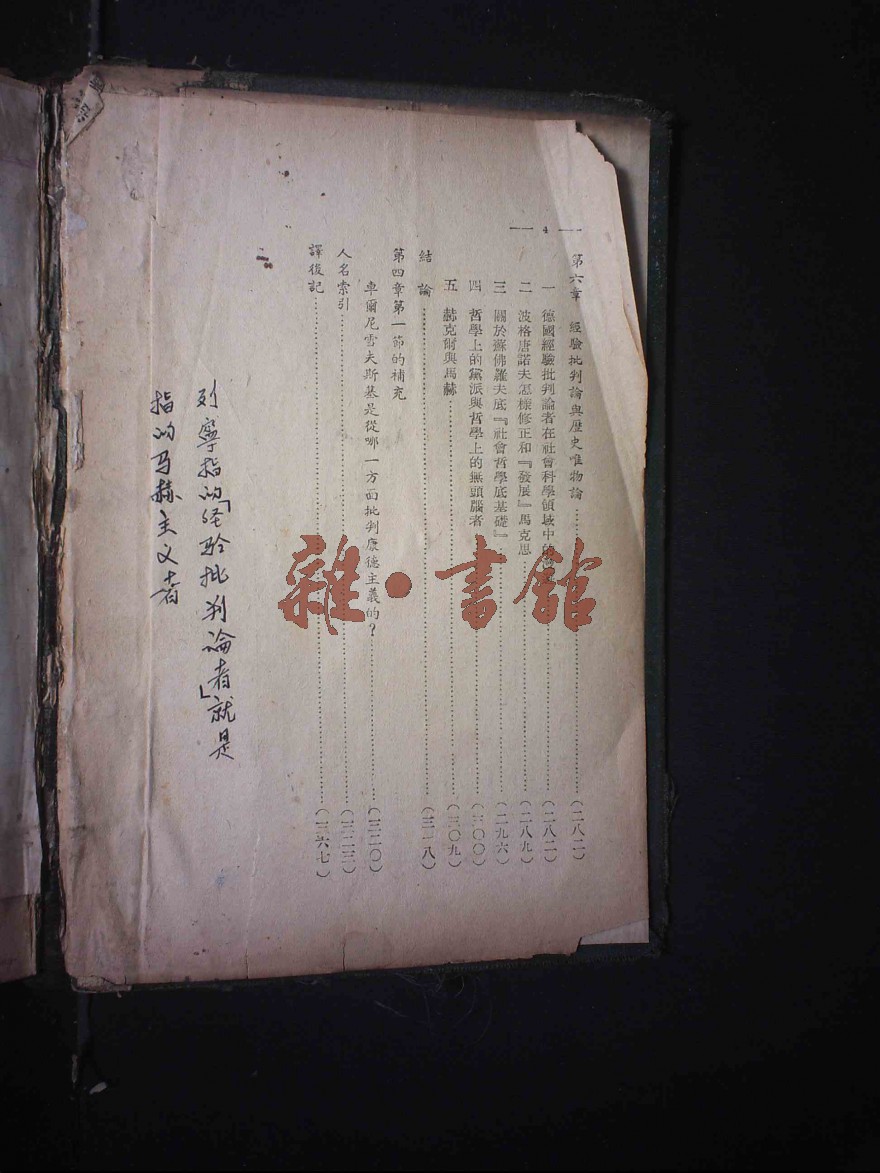 — 4 —
第六章 經驗批判論與歷史唯物論……(二八二)
一 德國經驗批判論者在社會科學領域中的……(二八二)
二 波格唐諾夫怎樣修正和『發展』馬克思……(二八九)
三 關於蘇佛羅夫底『社會哲學底基礎』……(二九六)
四 哲學上的黨派與哲學上的無頭腦者……(三〇〇)
五 赫克爾與馬赫……(三〇九)
結論……(三一八)
第四章第一節的補充
車爾尼雪夫斯基是從哪一方面批判康德主義的?……(三二〇)
人名索引……(三二三)
譯後記……(三六七)
列寧指的「経驗批判論者」就是
指的马赫主义者
雜·書館